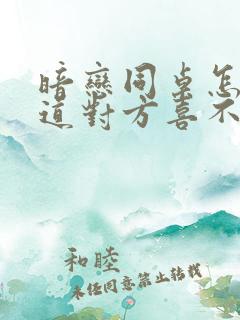 暗戀同桌怎
道對方喜不
和睦
未經同意禁止轉載